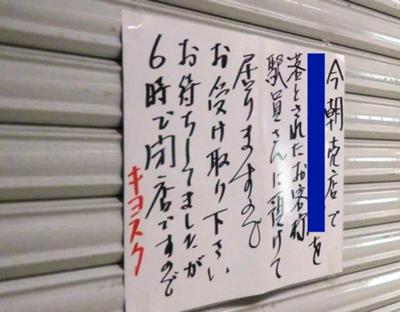 今朝売店で
を
落とされたお客様
駅員さんに預けて
居りますので
お受け取り下さい
お待ちしてましたが
6時で閉店ですので
キヨスク